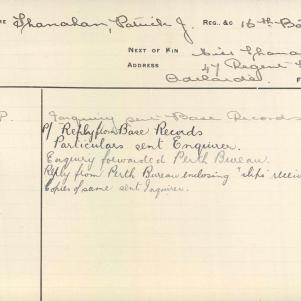 Shanahan, Patrick J. REG. &C 16th Ba
NEXT OF KIN Miss Shana
ADDRESS 47 Regent
Adelaide.
P. Enquiry sent Base Records
P/ Reply from Base Records
Particulars sent Enquirer.
Enquiry forwarded Perth Bureau.
Reply from Perth Bureau enclosing "slips" receiv
Copies of same sent Inquirer.